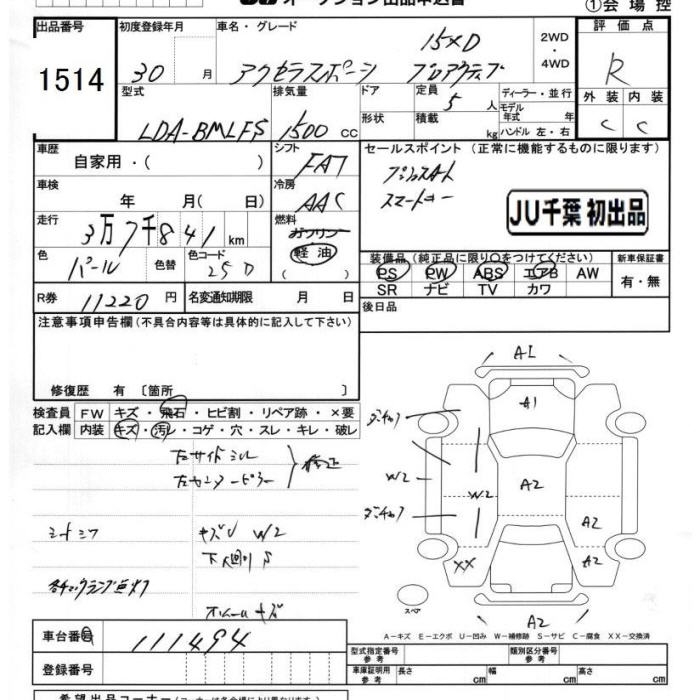 オークション出品申込書
①会場控
出品番号
1514
初度登録年月
30 月
車名・グレード
アクセラスポーツ 15XD プロアクティブ
2WD
・
4WD
評価点
R
外装 内装
C C
型式
LDA-BMLFS
排気量
1500 CC
ドア
形状
定員 5 人
積載 kg
ディーラー・並行
モデル年式 年式
ハンドル 左・右
車歴
自家用・( )
シフト
FAT
セールスポイント(正常に機能するものに限ります)
プッシュスタート
スマートキー
JU千葉 初出品
車検
年 月( 日)
冷房
AAC
走行
3万7千841 km
燃料
ガソリン
軽油
( )
色
パール
色替
色コード
25D
装備品(純正品に限り○をつけてください)
PS PW ABS エアB AW
SR ナビ TV カワ
新車保証書
有・無
R券 11220 円
名変通知期限 月 日
後日品
注意事項申告欄(不具合内容等は具体的に記入して下さい)
修復歴 有〔箇所 〕
検査員記入欄
FW キズ・飛石・ヒビ割・リペア跡・×要
内装 キズ・汚レ・コゲ・穴・スレ・キレ・破レ
左サイドシル
左センターピラー
修正
シートシワ
キズU W2
下廻りS
各チェックランプ点灯
A1
A1
W2
W2
A2
A2
XX
A2
A2
スペア
A-キズ E-エクボ U-凹み W-補修跡 S-サビ C-腐食 XX-交換済
車台番号
111494
登録番号
型式指定番号 参考
類別区分番号 参考
車庫証明用 参考
長さ cm
幅 cm
高さ cm
希望出品コーナー